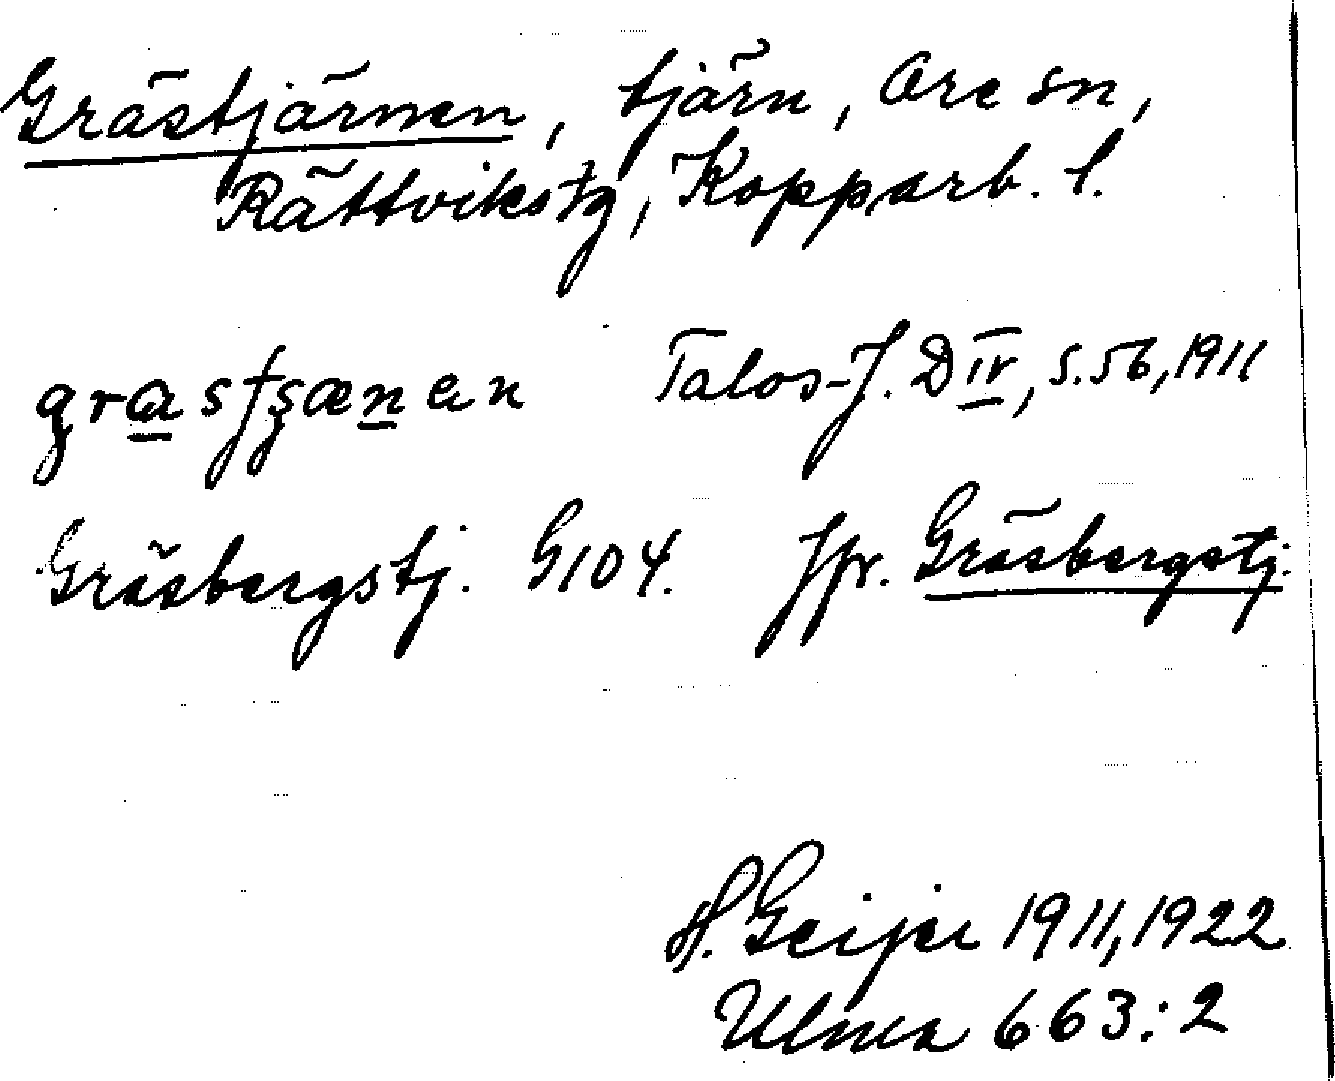 Grästjärnen, tjärn, Ore sn,
Rättvikstg, Kopparb. l.
Talos-J. D IV, S. 56, 1911
Gräsbergstj. G104. Jfr. Gräsbergstj.
H. Geijer 1911, 1922
Ulma 663:2